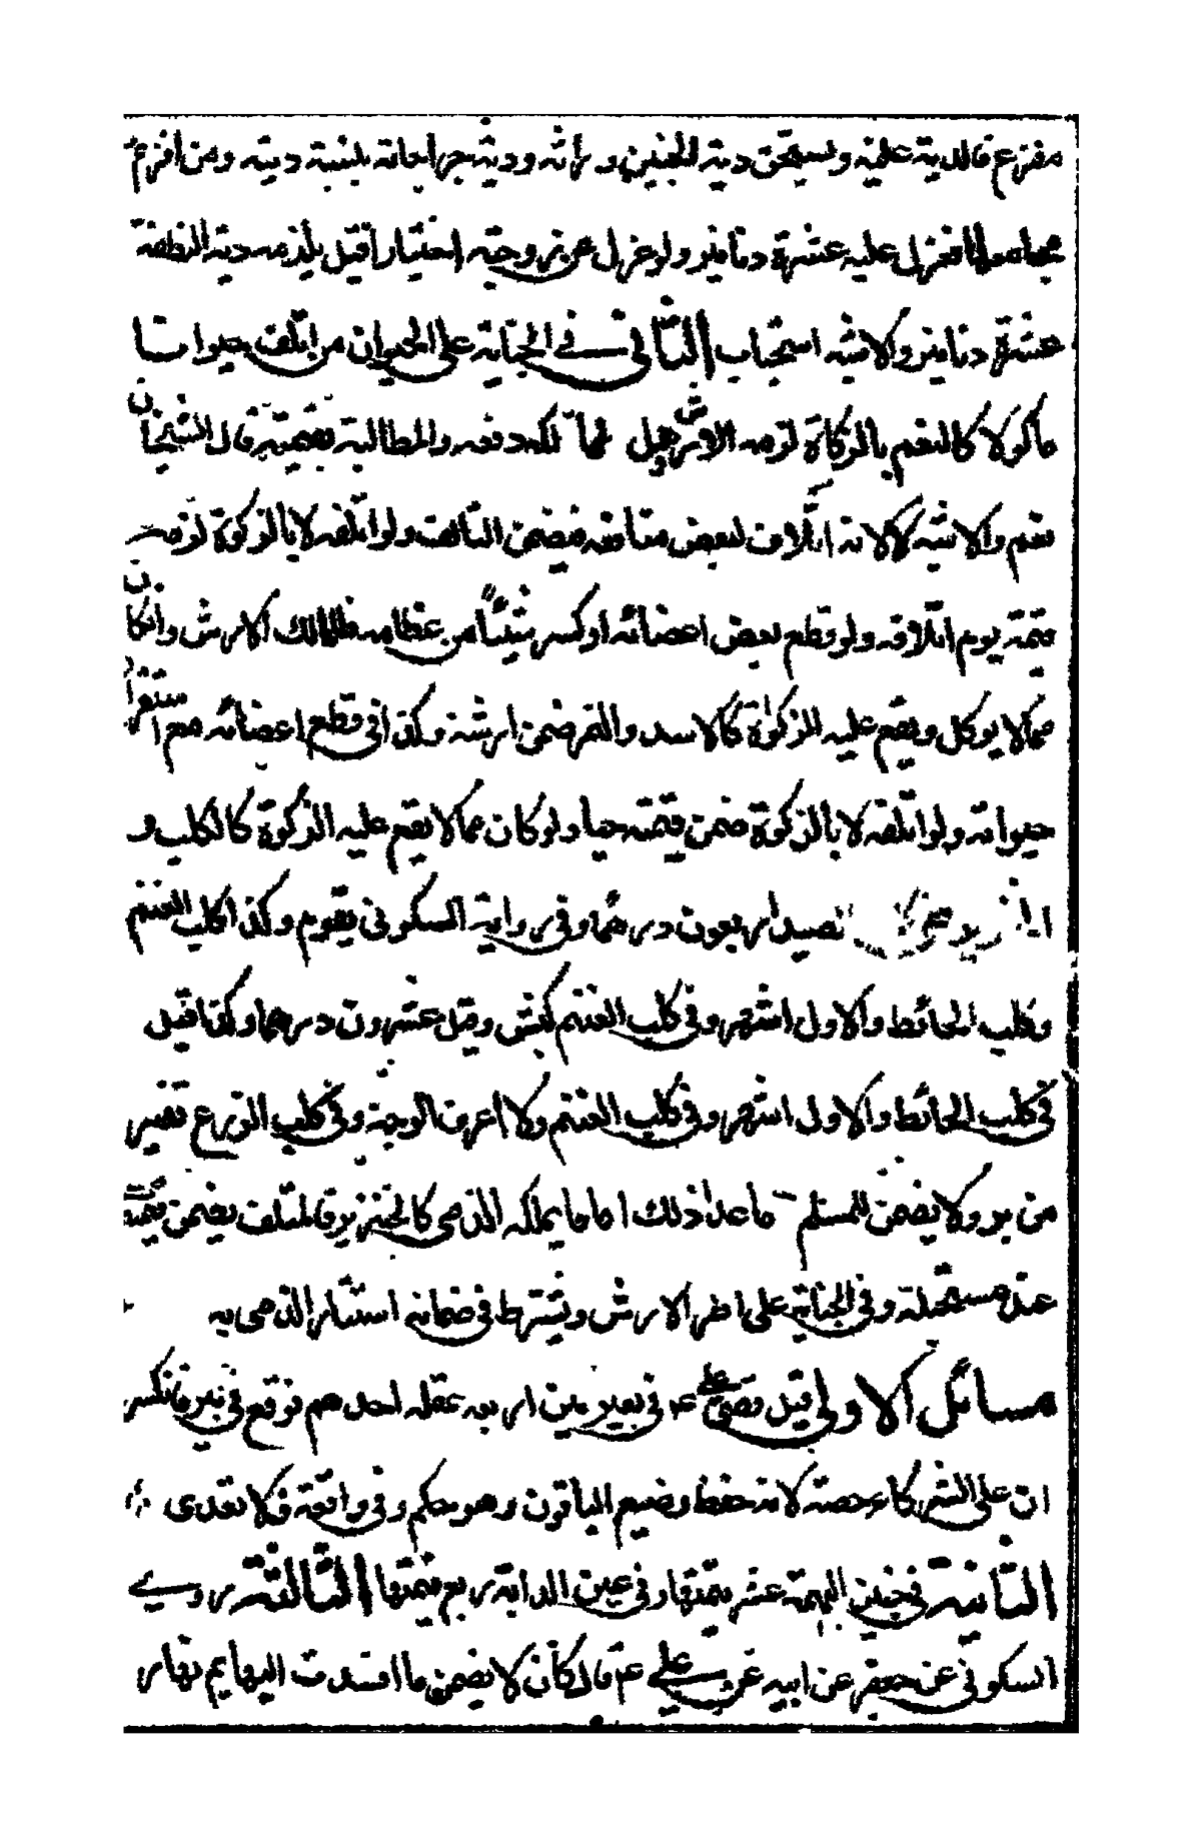 مفزع فالدية عليه ويستحق دية الجنين وراثه ودية جراحاته بنسبة ديته ومن افزع
مجامعا فعزل عليه عشرة دنانير ولو عزل عن زوجته اختيارا قيل يلزمه دية النطفة
عشرة دنانير والاشبه استحباب الثانى فى الجناية على الحيوان من اتلف حيوانا
ماكولا كالنعم بالزكاة لزمه الارش وهل لمالكه دفعه والمطالبة بقيمته قال الشيخان
نعم والاشبه لا لانه اتلاف لبعض منافعه فيضمن التالف ولو اتلفه لا بالزكوة لزمه
قيمته يوم اتلافه ولو قطع بعض اعضائه او كسر شيئا من عظامه فللمالك الارش وان كان
مما لا يوكل ويقع عليه الزكوة كالاسد والنمر ضمن ارشه وكذا فى قطع اعضائه مع استقرار
حيواته ولو اتلفه لا بالزكوة ضمن قيمته حيا ولو كان مما لا يقع عليه الزكوة كالكلب و
الصيد اربعون درهما وفى رواية السكونى يقوم وكذا كلب الغنم
وكلب الحائط والاول اشهر وفى كلب الغنم كبش وقيل عشرون درهما وكذا قيل
فى كلب الحائط والاول اشهر وفى كلب الغنم ولا اعرف الوجه وفى كلب الزرع قفيز
من بر ولا يضمن المسلم ما عدا ذلك اما ما يملكه الذمى كالخنزير فالمتلف يضمن قيمته
عند مستحله وفى الجناية على اطرافه الارش ويشترط فى ضمانه استتار الذمى به
مسائل الاولى قيل قضى على ع فى بعير بين اربعة عقله احدهم فوقع فى بير فانكسر
ان على الشركاء حصته لانه حفظ وضيع الباقون وهو حكم فى واقعة فلا يعدى
الثانية فى جنين البهيمة عشر قيمتها وفى عين الدابة ربع قيمتها الثالثة روى
السكونى عن جعفر عن ابيه عن على ع قال كان لا يضمن ما افسدت البهايم نهارا